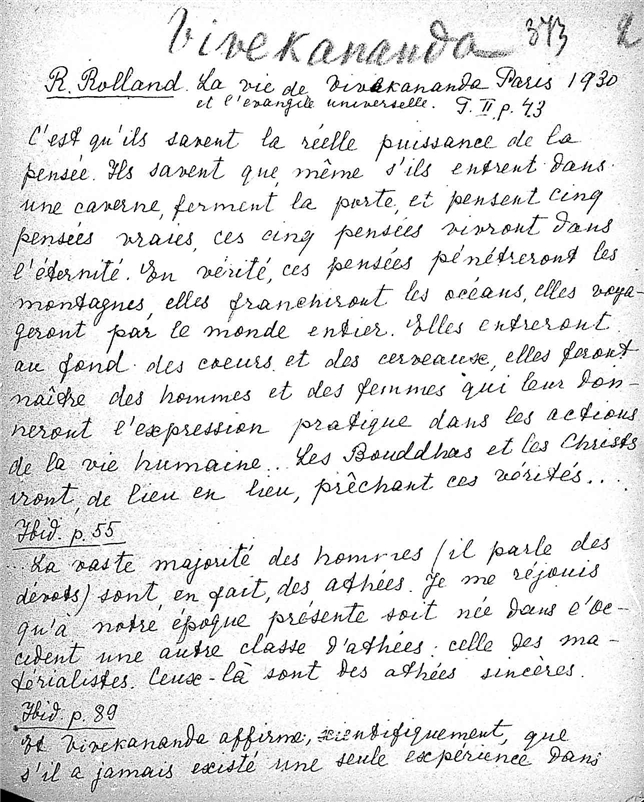 Vivekananda 373 2
R. Rolland. La vie de Vivekananda Paris 1930
et l'évangile universelle. T. II, p. 43
C'est qu'ils savent la réelle puissance de la
pensée. Ils savent que, même s'ils entrent dans
une caverne, ferment la porte, et pensent cinq
pensées vraies, ces cinq pensées vivront dans
l'éternité. En vérité, ces pensées pénétreront les
montagnes, elles franchiront les océans, elles voya-
geront par le monde entier. Elles entreront
au fond des coeurs et des cerveaux, elles feront
naître des hommes et des femmes qui leur don-
neront l'expression pratique dans les actions
de la vie humaine... Les Bouddhas et les Christs
iront, de lieu en lieu, prêchant ces vérités...
Ibid. p. 55
...La vaste majorité des hommes (il parle des
dévots) sont, en fait, des athées. Je me réjouis
qu'à notre époque présente soit née dans l'Oc-
cident une autre classe d'athées: celle des ma-
térialistes. Ceux-là sont des athées sincères.
Ibid. p. 89
Et Vivekananda affirme, scientifiquement, que
s'il a jamais existé une seule expérience dans